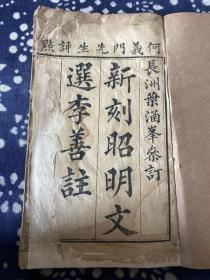 何義門先生評點
長洲葉涵峯參訂
新刻昭明文
選李善註